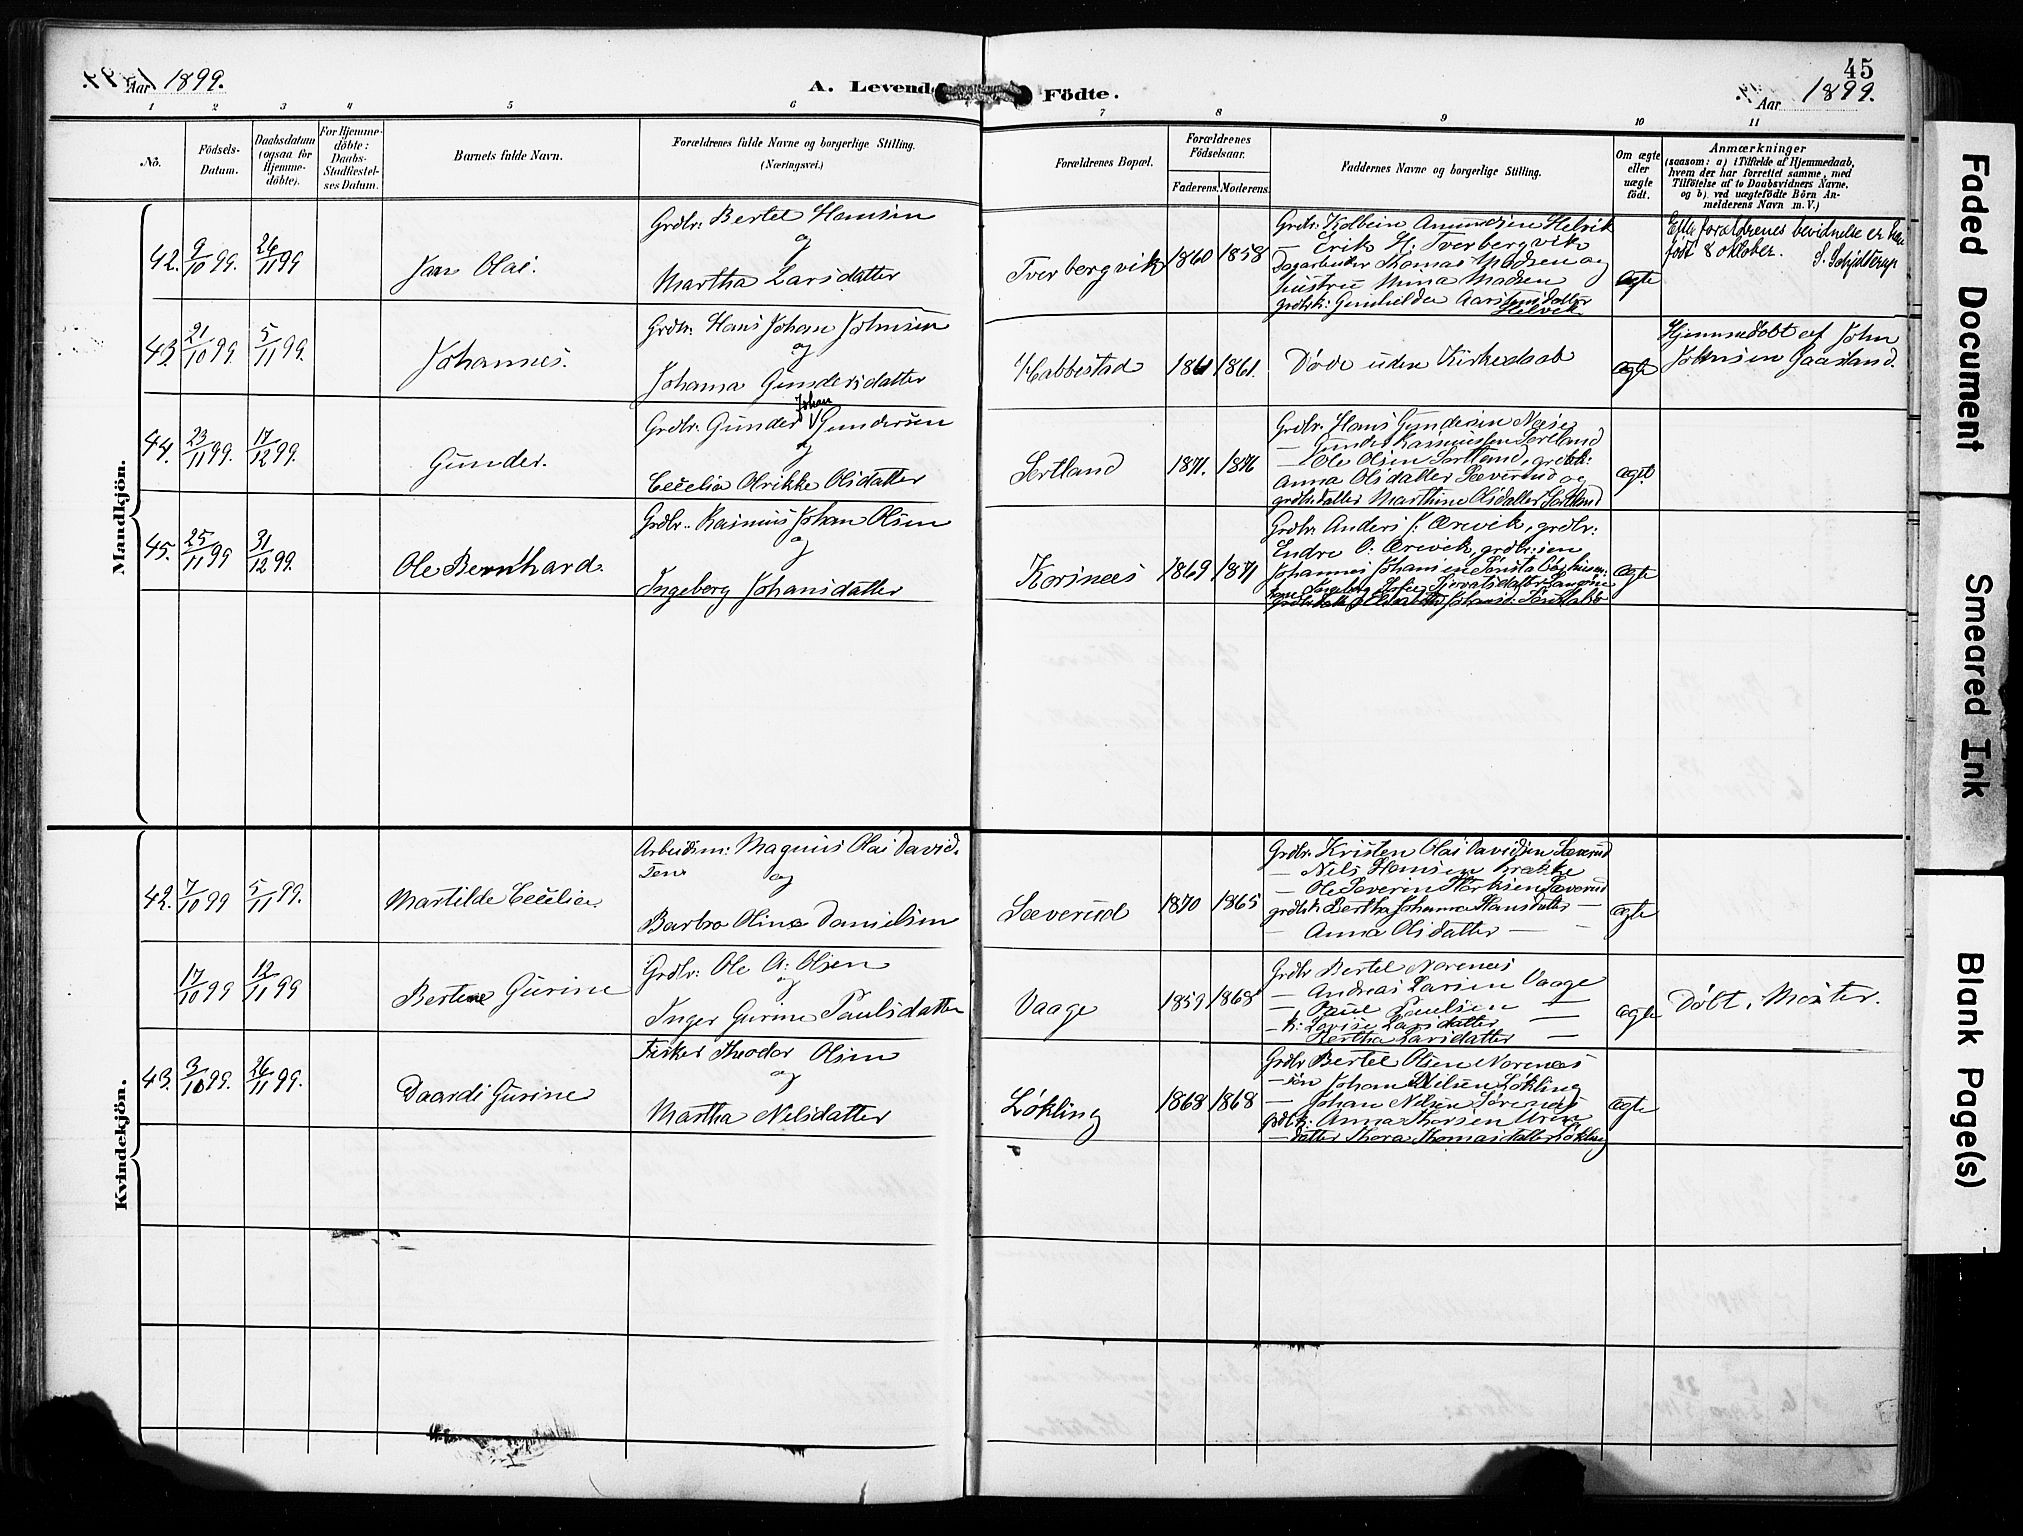 Aar 1899.
A. Levende Födte.
45
Aar 1899.
1 2 3 4 5 6 7 8 9 10 11
Nô.
Födsels-Datum.
Daabsdatum (ogsaa for Hjemme-döbte).
For Hjemme-döbte: Daabs-Stadfæstel-ses Datum.
Barnets fulde Navn.
Forældrenes fulde Navne og borgerlige Stilling.
(Næringsvei.)
Forældrenes Bopæl.
Forældrenes Födselsaar.
Faderens. Moderens.
Faddernes Navne og borgerlige Stilling.
Om ægte eller uægte födt.
Anmærkninger
(saasom: a) i Tilfælde af Hjemmedaab,
hvem der har forrettet samme, med
Tilföielse af to Daabsvidners Navne,
og b) ved uægtefödte Börn An-
melderens Navn m. V.)
Mandkjön.
42. 9/10 99. 26/11 99
Jan Olai.
Grdbr. Bertel Hansen
og
Martha Larsdatter
Tverbergvik 1860 1858
Grdbr. Kolbein Amundsen Helvik
— Erik H. Tverbergvik
Dagarbeider Thomas Madsen og
hustru Mina Madsen
grdbrk: Gunhilda Aarstensdatter
Helvik.
ægte
Efter forældrenes bevidnelse er han
født 8 oktober. S. Schjelderup
43. 21/10 99. 5/11 99.
Johannes.
Grdbr. Hans Johan Johnsen
og
Johanna Gundersdatter
Habbestad 1861 1861.
Døde uden Kirkedaab
ægte
Hjemmedøbt af John
Johnsen Gaasland.
44. 23/11 99. 17/12 99.
Gunder.
Grdbr. Gunder Johan Gundersen
og
Cecelia Olrikke Olsdatter
Sertland 1871. 1876
Grdbr. Hans Gundersen Næse
— Gunder Rasmussen Sertland
— Ole Olsen Sortland, grdbrk:
Anna Olsdatter Sæverud og
grdbrdatter Marthine Olsdatter Sortland
ægte
45. 25/11 99 31/12 99.
Ole Bernhard.
Grdbr. Rasmus Johan Olsen
og
Ingeborg Johansdatter
Korsnæs 1869 1871
Grdbr. Anders J. Ærevik, grdbr:
Endre O. Ærevik, grdbr:søn
ægte
Kvindekjön.
42. 7/10 99 5/11 99.
Martilde Cecelie.
Arbeidsm: Magnus Olai David-
sen og
Barbro Oline Danielsen
Sæverud 1870 1865
Grdbr. Kristen Olai Davidsen Sæverud
— Nils Hansen Brække
— Ole Severin Størksen Sæverud
grdbrk: Bertha Johanna Hansdatter —
— Anna Olsdatter — —
ægte
17/10 99 12/11 99
Bertine Gurine
Grdbr. Ole A. Olsen
og
Inger Gurine Paulsdatter
Vaage 1859 1868
Grdbr Bertel Norenæs
— Andreas Larsen Vaage
— Paul Paulsen —
— k: Lovise Larsdatter
— Bertha Larsdatter —
ægte
Døbt i Møster.
43. 3/10 99. 26/11 99.
Daardi Gurine
Fisker Theodor Olsen
og
Martha Nilsdatter
Løkling 1868 1868
Grdbr Bertel Olsen Norenæs
— søn Johan Nilsen Løkling
— Johan Nilsen Sørenæs
grdbrk: Anna Thorsen Urang
— datter Thora Thomasdatter Løkling
ægte
Faded Document
Smeared Ink
Blank Page(s)